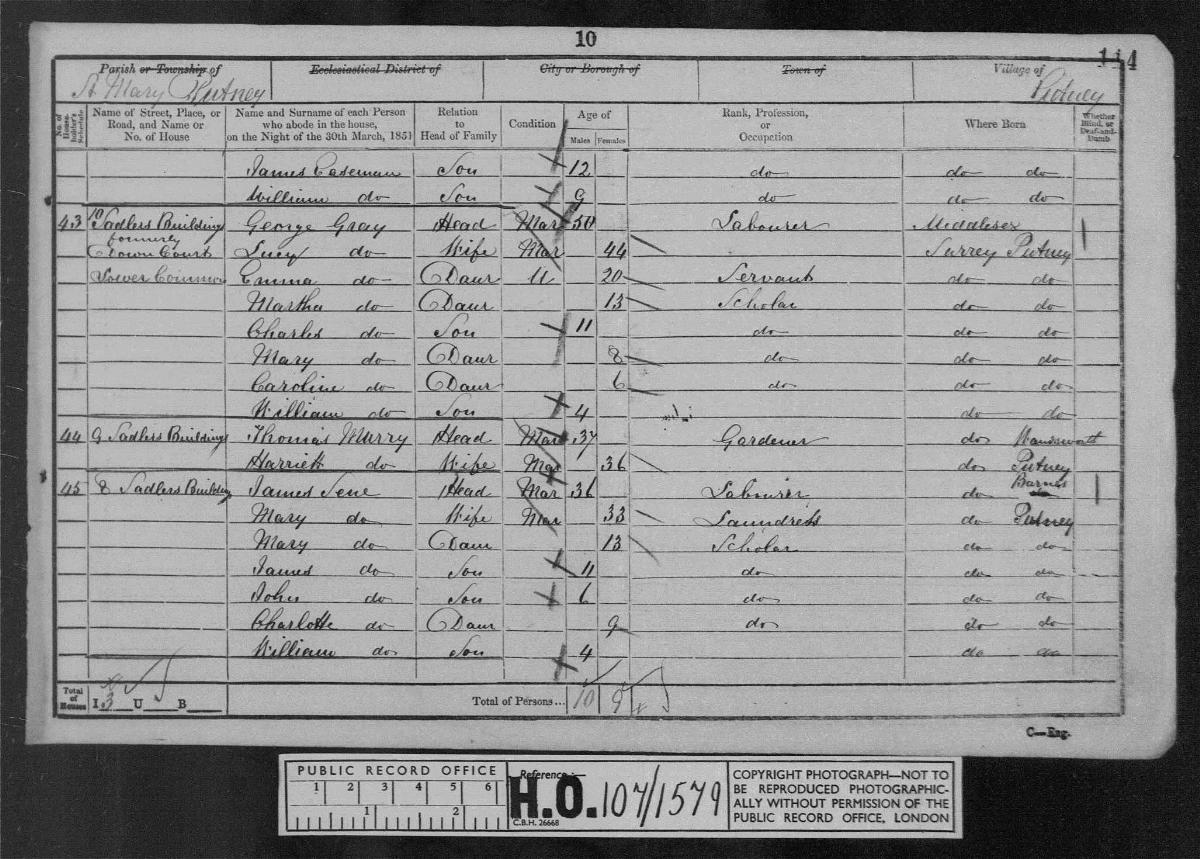 10
114
Parish or Township of Ecclesiastical District of City or Borough of Town of Village of
St Mary Putney Putney
No. of House-holder's Schedule Name of Street, Place, or Road, and Name or No. of House Name and Surname of each Person who abode in the house, on the Night of the 30th March, 1851 Relation to Head of Family Condition Age of Males Females Rank, Profession, or Occupation Where Born Whether Blind, or Deaf-and-Dumb
James Caseman Son 12 do do do
William do Son 9 do do do
43 10 Sadlers Buildings George Gray Head Mar 50 Labourer Middlesex
formerly
Court Lucy do Wife Mar 44 Surrey Putney
Lower Common Emma do Daur U 20 Servant do do
Martha do Daur 13 Scholar do do
Charles do Son 11 do do do
Mary do Daur 8 do do do
Caroline do Daur 6 do do do
William do Son 4 do do
44 9 Sadlers Buildings Thomas Murry Head Mar 37 Gardener do Wandsworth
Harriett do Wife Mar 36 do Putney
45 8 Sadlers Building James Head Mar 36 Labourer do Barnes
Mary do Wife Mar 33 Laundress do Putney
Mary do Daur 13 Scholar do do
James do Son 11 do do do
John do Son 6 do do do
Charlotte do Daur 9 do do do
William do Son 4 do do
Total of Houses I 3 U B Total of Persons... 10 9
C—Eng.
PUBLIC RECORD OFFICE
1 2 3 4 5 6
1 2
Reference:—
H.O. 107/1579
C.B.H. 26668
COPYRIGHT PHOTOGRAPH—NOT TO
BE REPRODUCED PHOTOGRAPHIC-
ALLY WITHOUT PERMISSION OF THE
PUBLIC RECORD OFFICE, LONDON